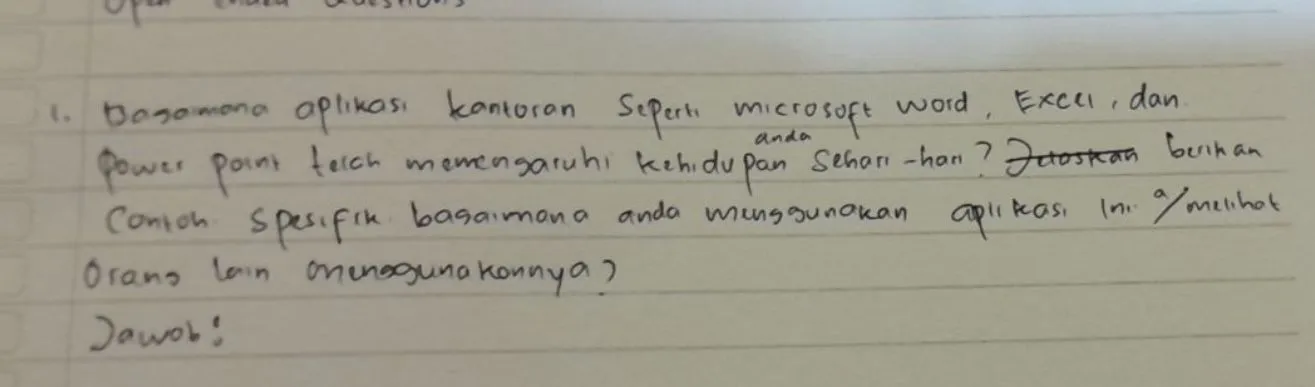 Open ended Questions
1. Bagaimana aplikasi kantoran Seperti microsoft word, Excel, dan
Power point telah memengaruhi kehidupan anda Sehari-hari? Jelaskan berikan
Contoh spesifik bagaimana anda menggunakan aplikasi Ini a/melihat
Orang lain menggunakannya?
Jawab: